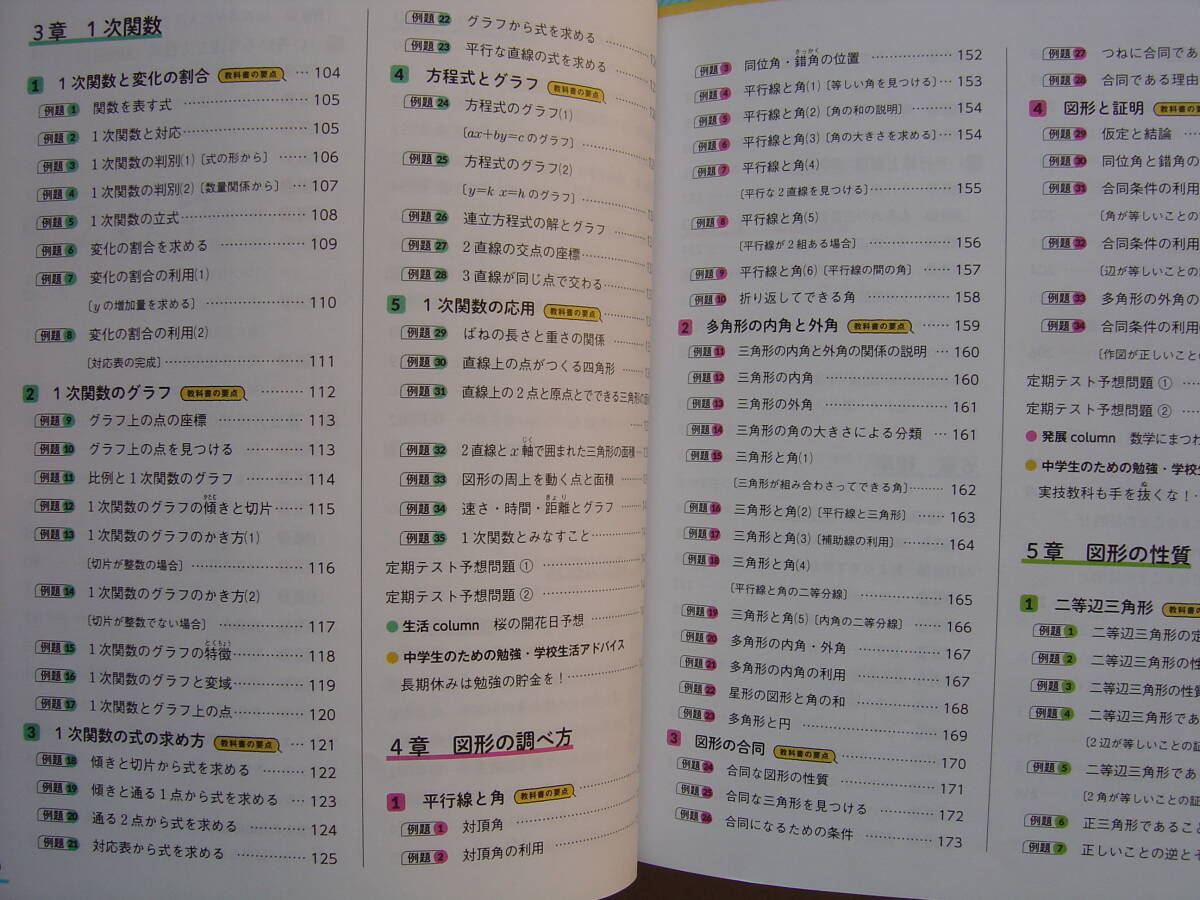 3章 1次関数
1 1次関数と変化の割合 教科書の要点 … 104
例題1 関数を表す式 ……… 105
例題2 1次関数と対応 ……… 105
例題3 1次関数の判別(1)〔式の形から〕 …… 106
例題4 1次関数の判別(2)〔数量関係から〕 …… 107
例題5 1次関数の立式 ……… 108
例題6 変化の割合を求める ……… 109
例題7 変化の割合の利用(1)
〔yの増加量を求める〕 ……… 110
例題8 変化の割合の利用(2)
〔対応表の完成〕 ……… 111
2 1次関数のグラフ 教科書の要点 ……… 112
例題9 グラフ上の点の座標 ……… 113
例題10 グラフ上の点を見つける ……… 113
例題11 比例と1次関数のグラフ ……… 114
例題12 1次関数のグラフの傾きと切片 …… 115
例題13 1次関数のグラフのかき方(1)
〔切片が整数の場合〕 ……… 116
例題14 1次関数のグラフのかき方(2)
〔切片が整数でない場合〕 ……… 117
例題15 1次関数のグラフの特徴 ……… 118
例題16 1次関数のグラフと変域 ……… 119
例題17 1次関数とグラフ上の点 ……… 120
3 1次関数の式の求め方 教科書の要点 … 121
例題18 傾きと切片から式を求める ……… 122
例題19 傾きと通る1点から式を求める …… 123
例題20 通る2点から式を求める ……… 124
例題21 対応表から式を求める ……… 125
例題22 グラフから式を求める ………
例題23 平行な直線の式を求める ………
4 方程式とグラフ 教科書の要点 ………
例題24 方程式のグラフ(1)
〔ax+by=cのグラフ〕 ………
例題25 方程式のグラフ(2)
〔y=k x=hのグラフ〕 ………
例題26 連立方程式の解とグラフ ………
例題27 2直線の交点の座標 ………
例題28 3直線が同じ点で交わる ………
5 1次関数の応用 教科書の要点 ………
例題29 ばねの長さと重さの関係 ………
例題30 直線上の点がつくる四角形 ………
例題31 直線上の2点と原点とでできる三角形の面
例題32 2直線とx軸で囲まれた三角形の面積
例題33 図形の周上を動く点と面積 ………
例題34 速さ・時間・距離とグラフ ………
例題35 1次関数とみなすこと ………
定期テスト予想問題 ① ………
定期テスト予想問題 ② ………
生活 column 桜の開花日予想 ………
中学生のための勉強・学校生活アドバイス
長期休みは勉強の貯金を! ………
4章 図形の調べ方
1 平行線と角 教科書の要点 ………
例題1 対頂角 ………
例題2 対頂角の利用 ………
例題3 同位角・錯角の位置 ……… 152
例題4 平行線と角(1)〔等しい角を見つける〕 … 153
例題5 平行線と角(2)〔角の和の説明〕 …… 154
例題6 平行線と角(3)〔角の大きさを求める〕 … 154
例題7 平行線と角(4)
〔平行な2直線を見つける〕 ……… 155
例題8 平行線と角(5)
〔平行線が2組ある場合〕 ……… 156
例題9 平行線と角(6)〔平行線の間の角〕 …… 157
例題10 折り返してできる角 ……… 158
2 多角形の内角と外角 教科書の要点 …… 159
例題11 三角形の内角と外角の関係の説明 … 160
例題12 三角形の内角 ……… 160
例題13 三角形の外角 ……… 161
例題14 三角形の角の大きさによる分類 … 161
例題15 三角形と角(1)
〔三角形が組み合わさってできる角〕 …… 162
例題16 三角形と角(2)〔平行線と三角形〕 …… 163
例題17 三角形と角(3)〔補助線の利用〕 ……… 164
例題18 三角形と角(4)
〔平行線と角の二等分線〕 ……… 165
例題19 三角形と角(5)〔内角の二等分線〕 …… 166
例題20 多角形の内角・外角 ……… 167
例題21 多角形の内角の利用 ……… 167
例題22 星形の図形と角の和 ……… 168
例題23 多角形と円 ……… 169
3 図形の合同 教科書の要点 ……… 170
例題24 合同な図形の性質 ……… 171
例題25 合同な三角形を見つける ……… 172
例題26 合同になるための条件 ……… 173
例題27 つねに合同であ
例題28 合同である理由
4 図形と証明 教科書の
例題29 仮定と結論 …
例題30 同位角と錯角の
例題31 合同条件の利用
〔角が等しいことの
例題32 合同条件の利用
〔辺が等しいことの
例題33 多角形の外角の
例題34 合同条件の利用
〔作図が正しいこと
定期テスト予想問題 ① …
定期テスト予想問題 ② …
発展 column 数学にまつわ
中学生のための勉強・学校生
実技教科も手を抜くな!
5章 図形の性質
1 二等辺三角形 教科書の
例題1 二等辺三角形の定
例題2 二等辺三角形の性
例題3 二等辺三角形の性質
例題4 二等辺三角形であ
〔2辺が等しいことの証
例題5 二等辺三角形であ
〔2角が等しいことの証
例題6 正三角形であること
例題7 正しいことの逆とそ